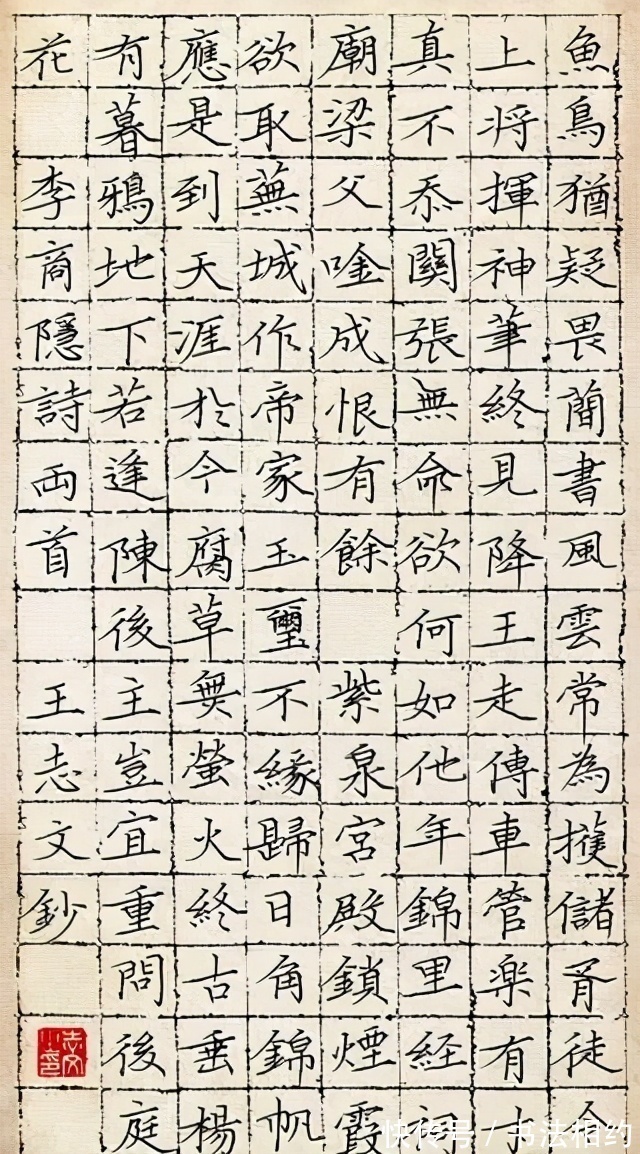 魚鳥猶疑畏簡書風雲常為擭儲胥徒令
上將揮神筆終見降王走傳車管楽有才
真不忝關張無命欲何如他年錦里經祠
廟梁父唫成恨有餘 紫泉宮殿鎖煙霞
欲取蕪城作帝家玉璽不緣歸日角錦帆
應是到天涯於今腐草無螢火終古垂楊
有暮鴉地下若逢陳後主豈宜重問後庭
花 李商隱詩兩首 王志文鈔
快传号 / 书法相约